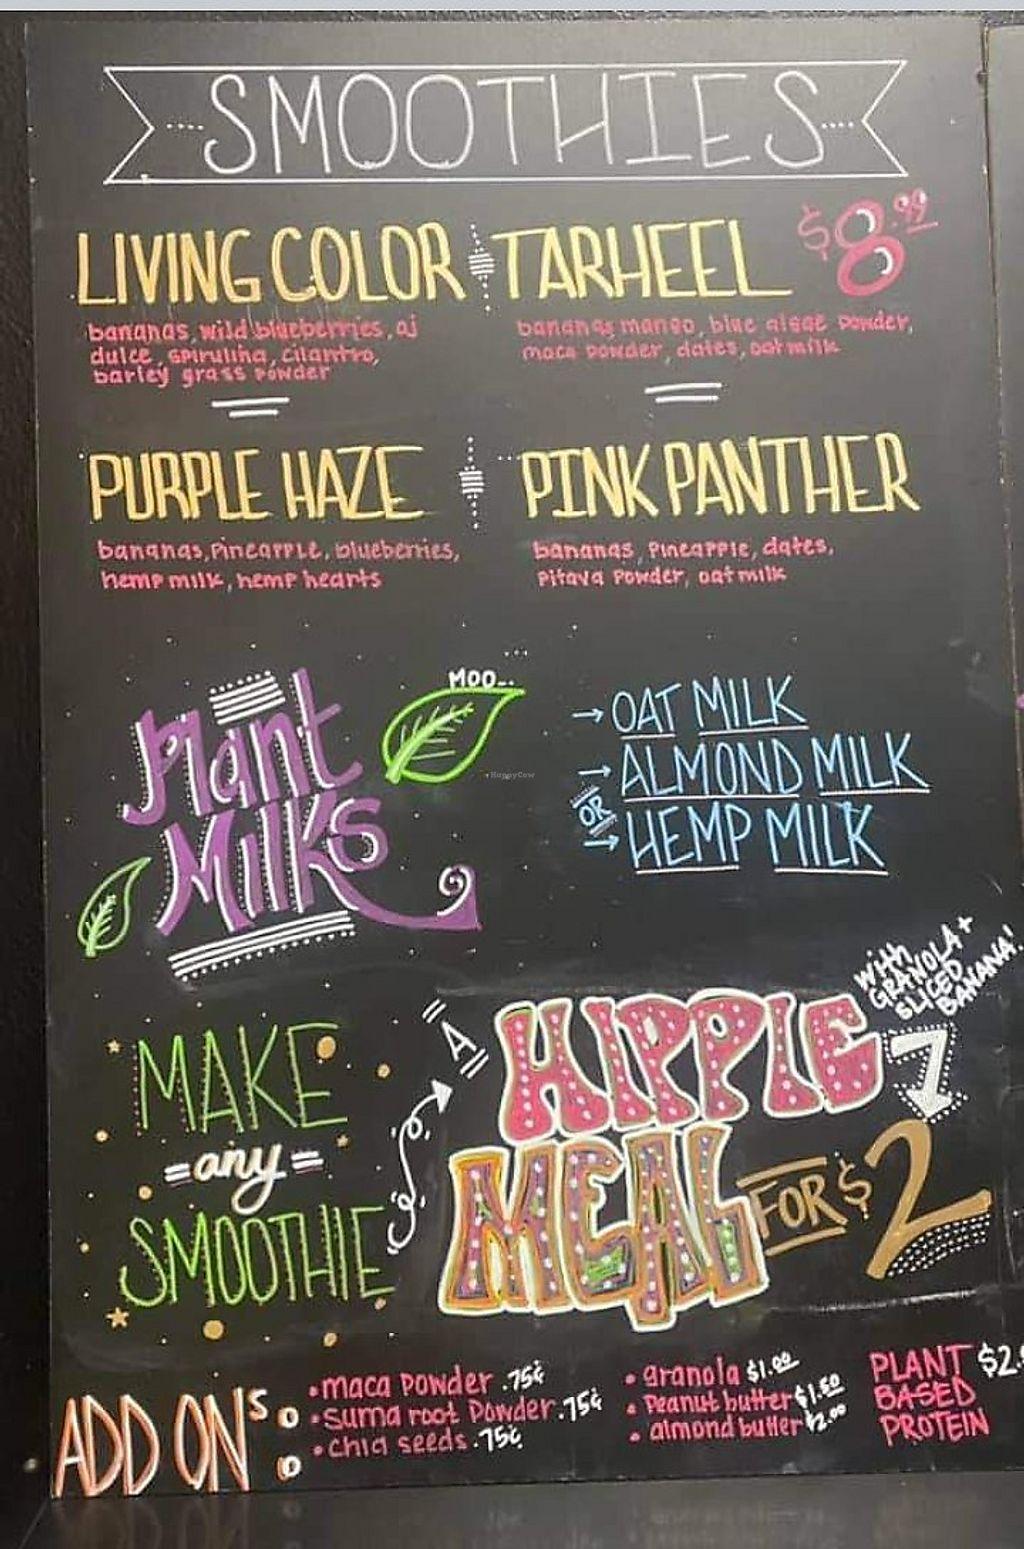 SMOOTHIES
LIVING COLOR
bananas, wild blueberries, aj
dulce, spirulina, cilantro,
barley grass powder
TARHEEL
$8.99
bananas mango, blue algae powder,
maca powder, dates, oat milk
PURPLE HAZE
bananas, pineapple, blueberries,
hemp milk, hemp hearts
PINK PANTHER
bananas, pineapple, dates,
pitaya powder, oat milk
Plant
Milks
MOO...
→ OAT MILK
→ ALMOND MILK
OR
→ HEMP MILK
MAKE
=any=
SMOOTHIE
A
HIPPIE
MEAL
FOR $2
with
GRANOLA +
SLICED
BANANA!
ADD ONs
• maca powder .75¢
• suma root powder .75¢
• chia seeds .75¢
• granola $1.00
• Peanut butter $1.50
• almond butter $2.00
PLANT
BASED
PROTEIN
HappyCow